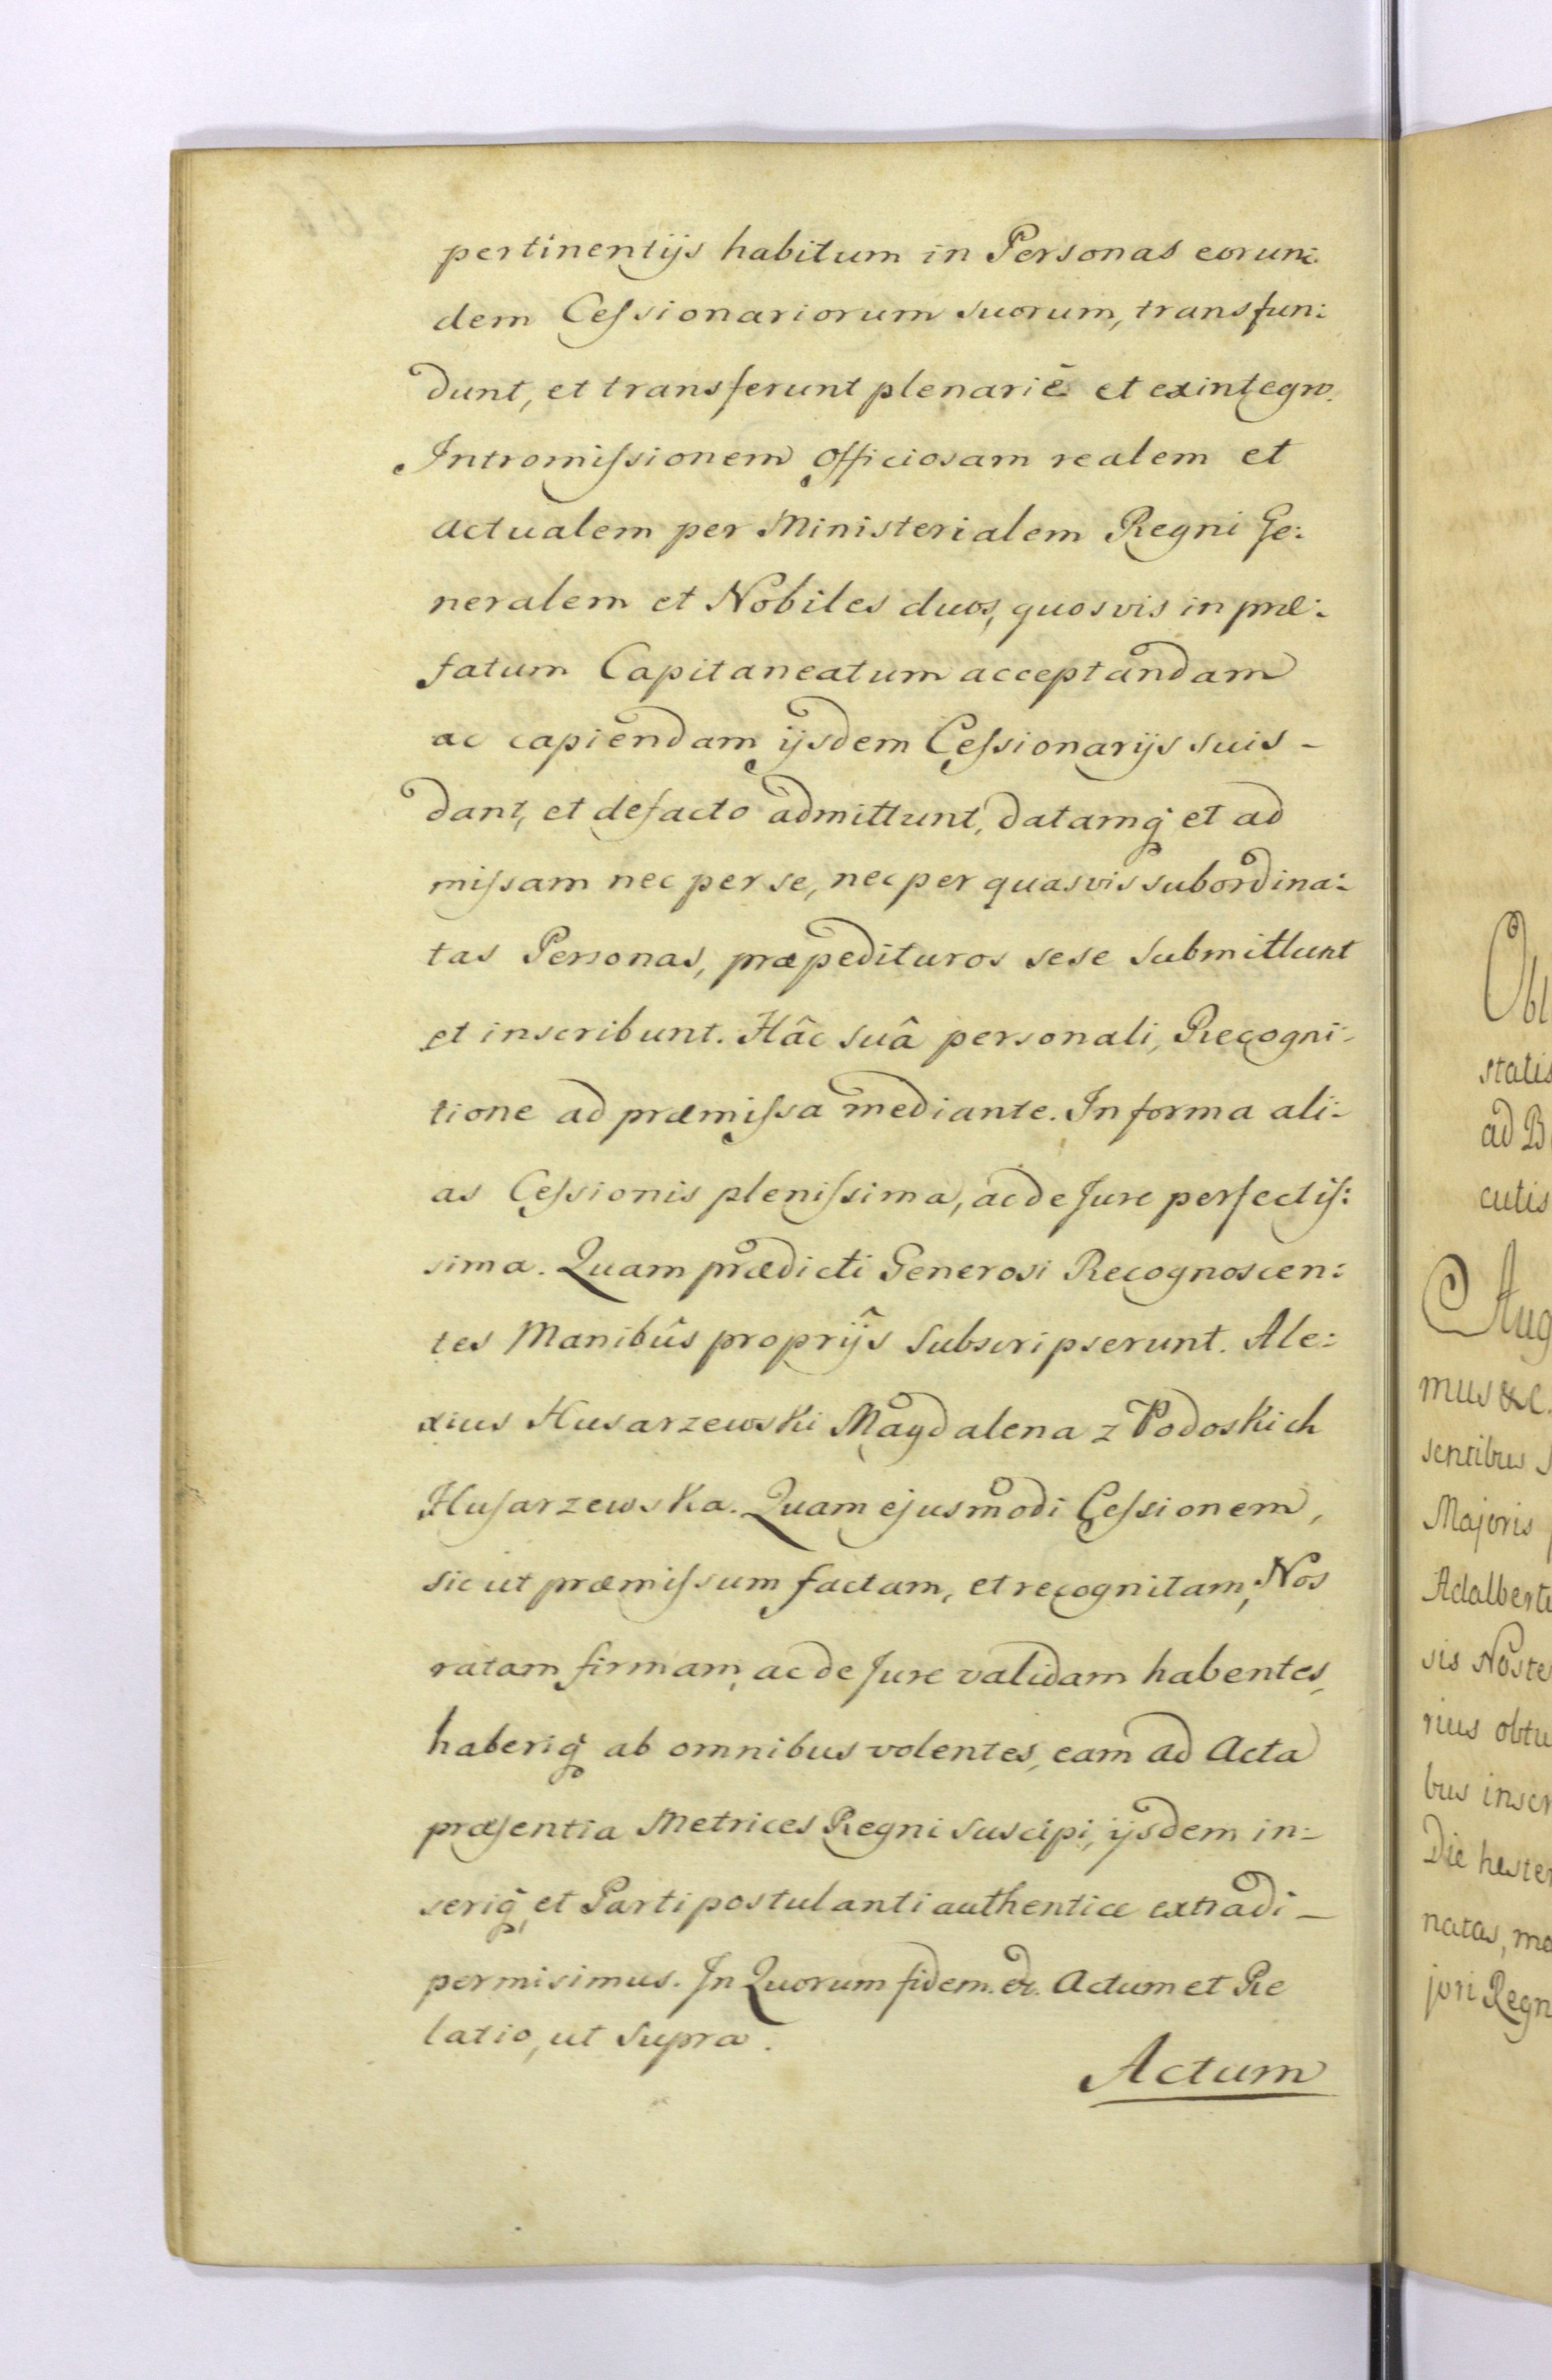 pertinentijs habitum in Personas eorun:
dem Ceſsionariorum suorum, transfun:
dunt, et transferunt plenariè et exintegro.
Intromiſsionem officiosam realem et
actualem per Ministerialem Regni Ge:
neralem et Nobiles duos, quosvis in præ:
fatum Capitaneatum acceptandam
ac capiendam ijsdem Ceſsionarijs suis -
dant, et defacto admittunt, datamq́ et ad
miſsam nec per se, nec per quasvis subordina:
tas Personas, præpedituros sese submittunt
et inscribunt. Hâc suâ personali, Recogni-
tione ad præmiſsa mediante. In forma ali:
as Ceſsionis pleniſsima, ac de Jure perfectiſ:
sima. Quam prædicti Generosi Recognoscen:
tes Manibûs proprijs subscripserunt. Ale:
xius Husarzewski Magdalena z Podoskich
Huſarzewska. Quam ejusmodi Ceſsionem,
sicut præmiſsum factam, et recognitam, Nos
ratam firmam, ac de Jure validam habentes,
haberiq́ ab omnibus volentes, eam ad Acta
præſentia Metrices Regni suscipi, ijsdem in:
seriq́, et Parti postulanti authentice extradi -
permisimus. In Quorum fidem. &. Actum et Re
latio, ut supra.
Actum
Obl
statis
ad B
cutis
Aug
mus &c.
sentibus
Majoris
Adalbert
sis Noste
rius obtu
bus inscr
Die hester
natas, mo
jori Regn